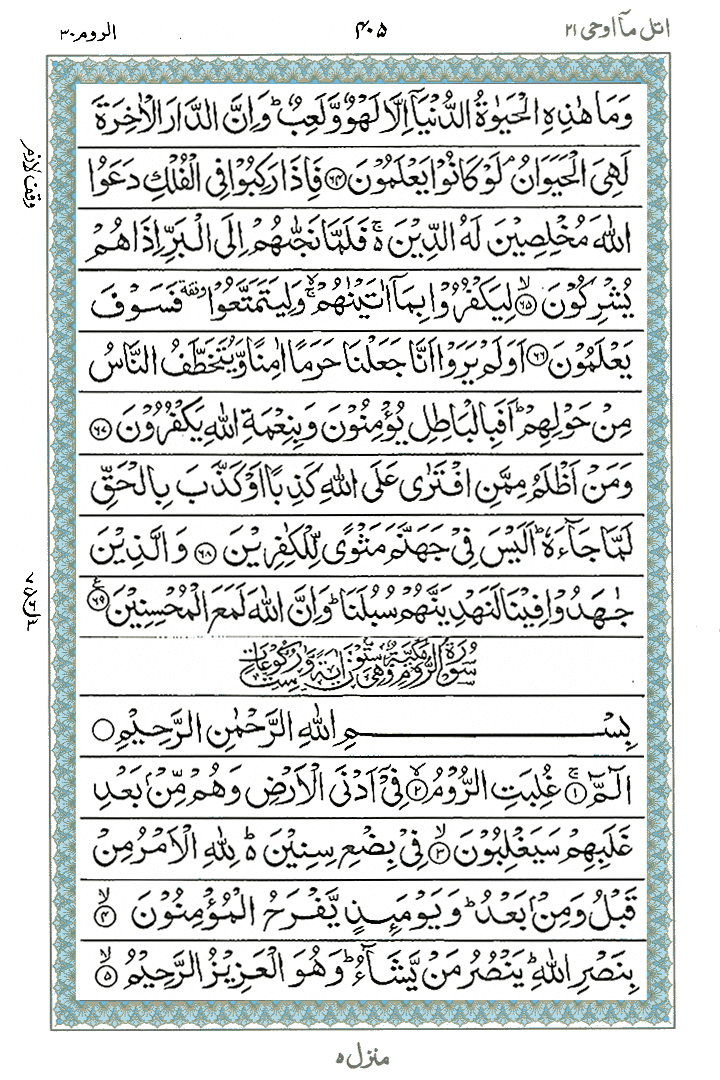 اتل مآ اوحی ۲۱
۴۰۵
الروم ۳۰
وَمَا هٰذِهِ الْحَيٰوةُ الدُّنْيَآ اِلَّا لَهْوٌ وَّلَعِبٌ ؕ وَاِنَّ الدَّارَ الْاٰخِرَةَ
لَهِيَ الْحَيَوَانُ ۘ لَوْ كَانُوْا يَعْلَمُوْنَ ﴿۶۴﴾ فَاِذَا رَكِبُوْا فِي الْفُلْكِ دَعَوُا
اللّٰهَ مُخْلِصِيْنَ لَهُ الدِّيْنَ ۚ۬ فَلَمَّا نَجّٰىهُمْ اِلَى الْبَرِّ اِذَا هُمْ
يُشْرِكُوْنَ ﴿۶۵﴾ۙ لِيَكْفُرُوْا بِمَآ اٰتَيْنٰهُمْ ۙۚ وَلِيَتَمَتَّعُوْا وقفة فَسَوْفَ
يَعْلَمُوْنَ ﴿۶۶﴾ اَوَلَمْ يَرَوْا اَنَّا جَعَلْنَا حَرَمًا اٰمِنًا وَّيُتَخَطَّفُ النَّاسُ
مِنْ حَوْلِهِمْ ؕ اَفَبِالْبَاطِلِ يُؤْمِنُوْنَ وَبِنِعْمَةِ اللّٰهِ يَكْفُرُوْنَ ﴿۶۷﴾
وَمَنْ اَظْلَمُ مِمَّنِ افْتَرٰى عَلَى اللّٰهِ كَذِبًا اَوْ كَذَّبَ بِالْحَقِّ
لَمَّا جَآءَهٗ ؕ اَلَيْسَ فِيْ جَهَنَّمَ مَثْوًى لِّلْكٰفِرِيْنَ ﴿۶۸﴾ وَالَّذِيْنَ
جٰهَدُوْا فِيْنَا لَنَهْدِيَنَّهُمْ سُبُلَنَا ؕ وَاِنَّ اللّٰهَ لَمَعَ الْمُحْسِنِيْنَ ﴿۶۹﴾ ع
سُوْرَةُ الرُّوْمِ مَكِّيَّةٌ وَّهِيَ سِتُّوْنَ اٰيَةً وَّسِتُّ رُكُوْعَاتٍ
بِسْمِ اللّٰهِ الرَّحْمٰنِ الرَّحِيْمِ
الٓمّٓ ﴿۱﴾ۚ غُلِبَتِ الرُّوْمُ ﴿۲﴾ۙ فِيْٓ اَدْنَى الْاَرْضِ وَهُمْ مِّنْۢ بَعْدِ
غَلَبِهِمْ سَيَغْلِبُوْنَ ﴿۳﴾ۙ فِيْ بِضْعِ سِنِيْنَ ؕ۬ لِلّٰهِ الْاَمْرُ مِنْ
قَبْلُ وَمِنْۢ بَعْدُ ؕ وَيَوْمَئِذٍ يَّفْرَحُ الْمُؤْمِنُوْنَ ﴿۴﴾ۙ
بِنَصْرِ اللّٰهِ ؕ يَنْصُرُ مَنْ يَّشَآءُ ؕ وَهُوَ الْعَزِيْزُ الرَّحِيْمُ ﴿۵﴾ۙ
وقف لازم
منزل ۵